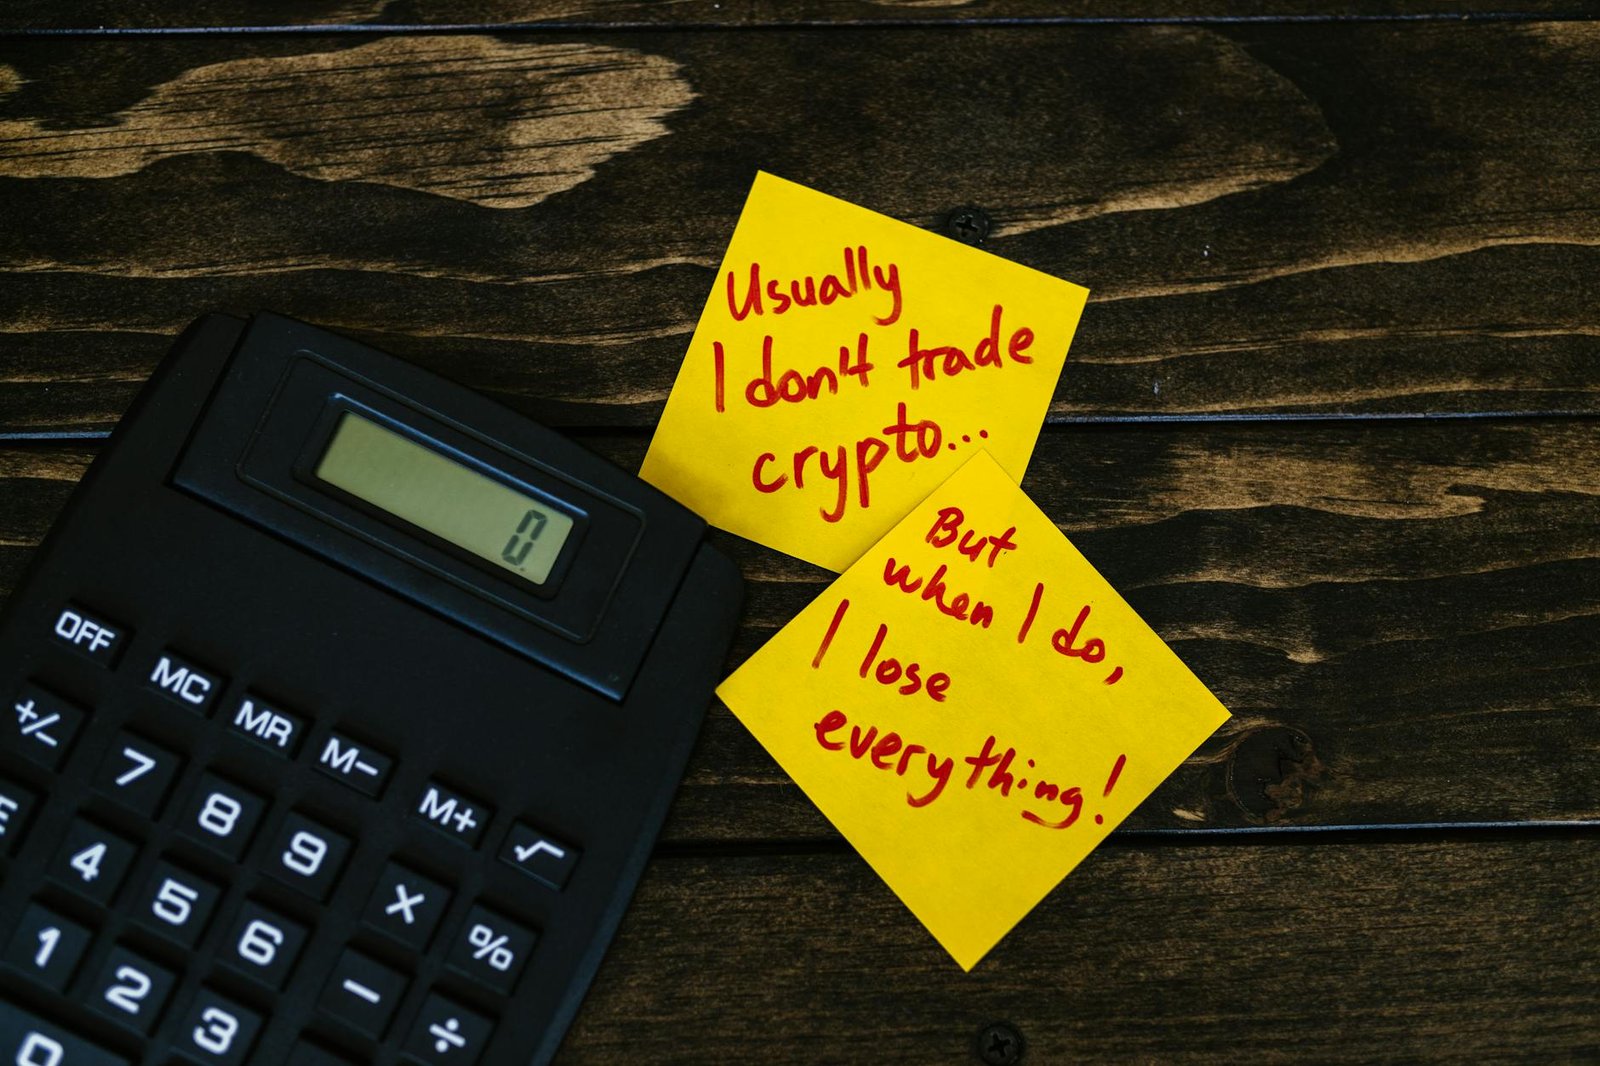 Usually
I don't trade
crypto...
But
when I do,
I lose
everything!
0.
OFF
MC
MR
M-
M+
√
+/-
7
8
9
×
%
E
4
5
6
-
÷
1
2
3
0